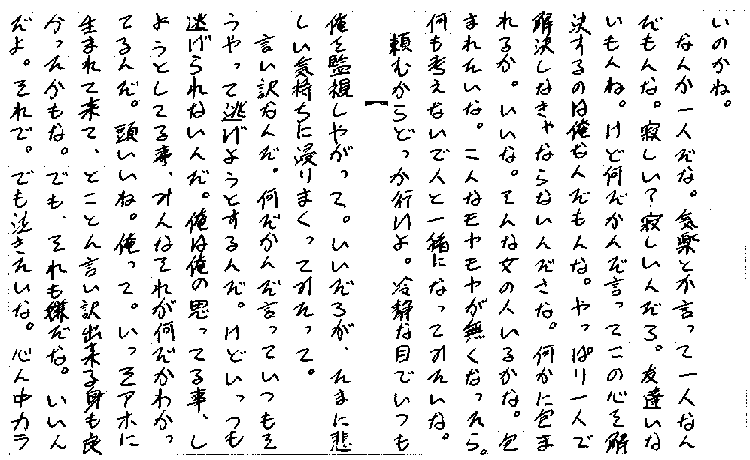 いのかね。
なんか一人だな。気楽とか言って一人なん
だもんな。寂しい?寂しいんだろ。友達いな
いもんね。けど何だかんだ言ってこの心を解
決するのは俺なんだもんな。やっぱり一人で
解決しなきゃならないんださな。何かに包ま
れるか。いいな。そんな女の人いるかな。包
まれたいな。こんなモヤモヤが無くなったら。
何も考えないで人と一緒になってみたいな。
頼むからどっか行けよ。冷静な目でいつも
俺を監視しやがって。いいだろが、たまに悲
しい気持ちに浸りまくってみたって。
言い訳なんだ。何だかんだ言っていつもそ
うやって逃げようとするんだ。けどいっつも
逃げられないんだ。俺は俺の思ってる事、し
ようとしてる事、みんなそれが何だかわかっ
てるんだ。頭いいね。俺って。いっそアホに
生まれて来て、とことん言い訳出来る身も良
かったかもな。でも、それも嫌だな。いいん
だよ。それで。でも泣きたいな。心ん中カラ